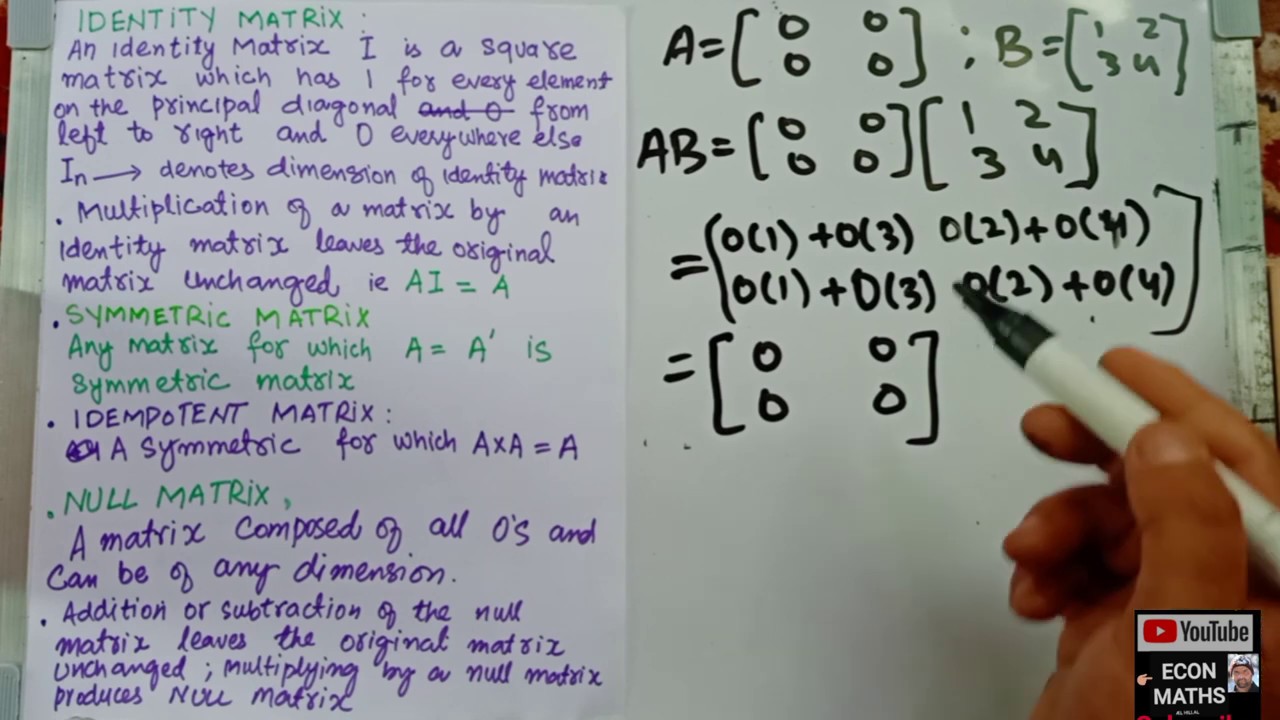 IDENTITY MATRIX :
An identity Matrix I is a square
matrix which has 1 for every element
on the principal diagonal and 0 from
left to right and 0 everywhere else
In → denotes dimension of identity matrix
. Multiplication of a matrix by an
identity matrix leaves the original
matrix unchanged ie AI = A
. SYMMETRIC MATRIX
Any matrix for which A = A' is
symmetric matrix
. IDEMPOTENT MATRIX :
A symmetric for which A×A = A
. NULL MATRIX,
A matrix composed of all 0's and
can be of any dimension.
. Addition or subtraction of the null
matrix leaves the original matrix
unchanged ; multiplying by a null matrix
produces NULL matrix
A = [ 0 0 ; B = [ 1 2
0 0 ] 3 4 ]
AB = [ 0 0 ] [ 1 2
0 0 3 4 ]
= [ 0(1) + 0(3) 0(2) + 0(4)
0(1) + 0(3) 0(2) + 0(4) ]
= [ 0 0
0 0 ]
YouTube
ECON
MATHS